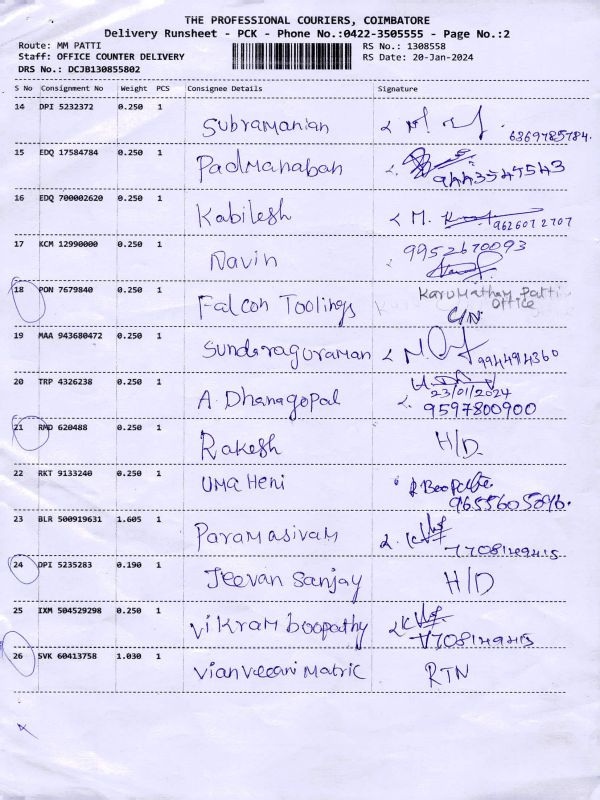 THE PROFESSIONAL COURIERS, COIMBATORE
Delivery Runsheet - PCK - Phone No.:0422-3505555 - Page No.:2
Route: MM PATTI RS No.: 1308558
Staff: OFFICE COUNTER DELIVERY RS Date: 20-Jan-2024
DRS No.: DCJB130855802
S No Consignment No Weight PCS Consignee Details Signature
14 DPI 5232372 0.250 1
Subramanian 6369785784.
15 EDQ 17584784 0.250 1
Padmanaban 9443547543
16 EDQ 700002620 0.250 1
Kabilesh M. 9626072707
17 KCM 12990000 0.250 1 9952670093
Navin
18 PON 7679840 0.250 1 Karumathampatti
Office
Falcon Toolings C/N
19 MAA 943680472 0.250 1
Sundaraguraman 9944914360
20 TRP 4326238 0.250 1
23/01/2024
A. Dhanagopal 9597800900
21 RMD 620488 0.250 1
Rakesh H/D
22 RKT 9133240 0.250 1
Uma Heni
23 BLR 500919631 1.605 1
Paramasivam 7708149415
24 DPI 5235283 0.190 1
Jeevan Sanjay H/D
25 IXM 504529298 0.250 1
Vikram boopathy 7708149415
26 SVK 60413758 1.030 1
Matric RTN